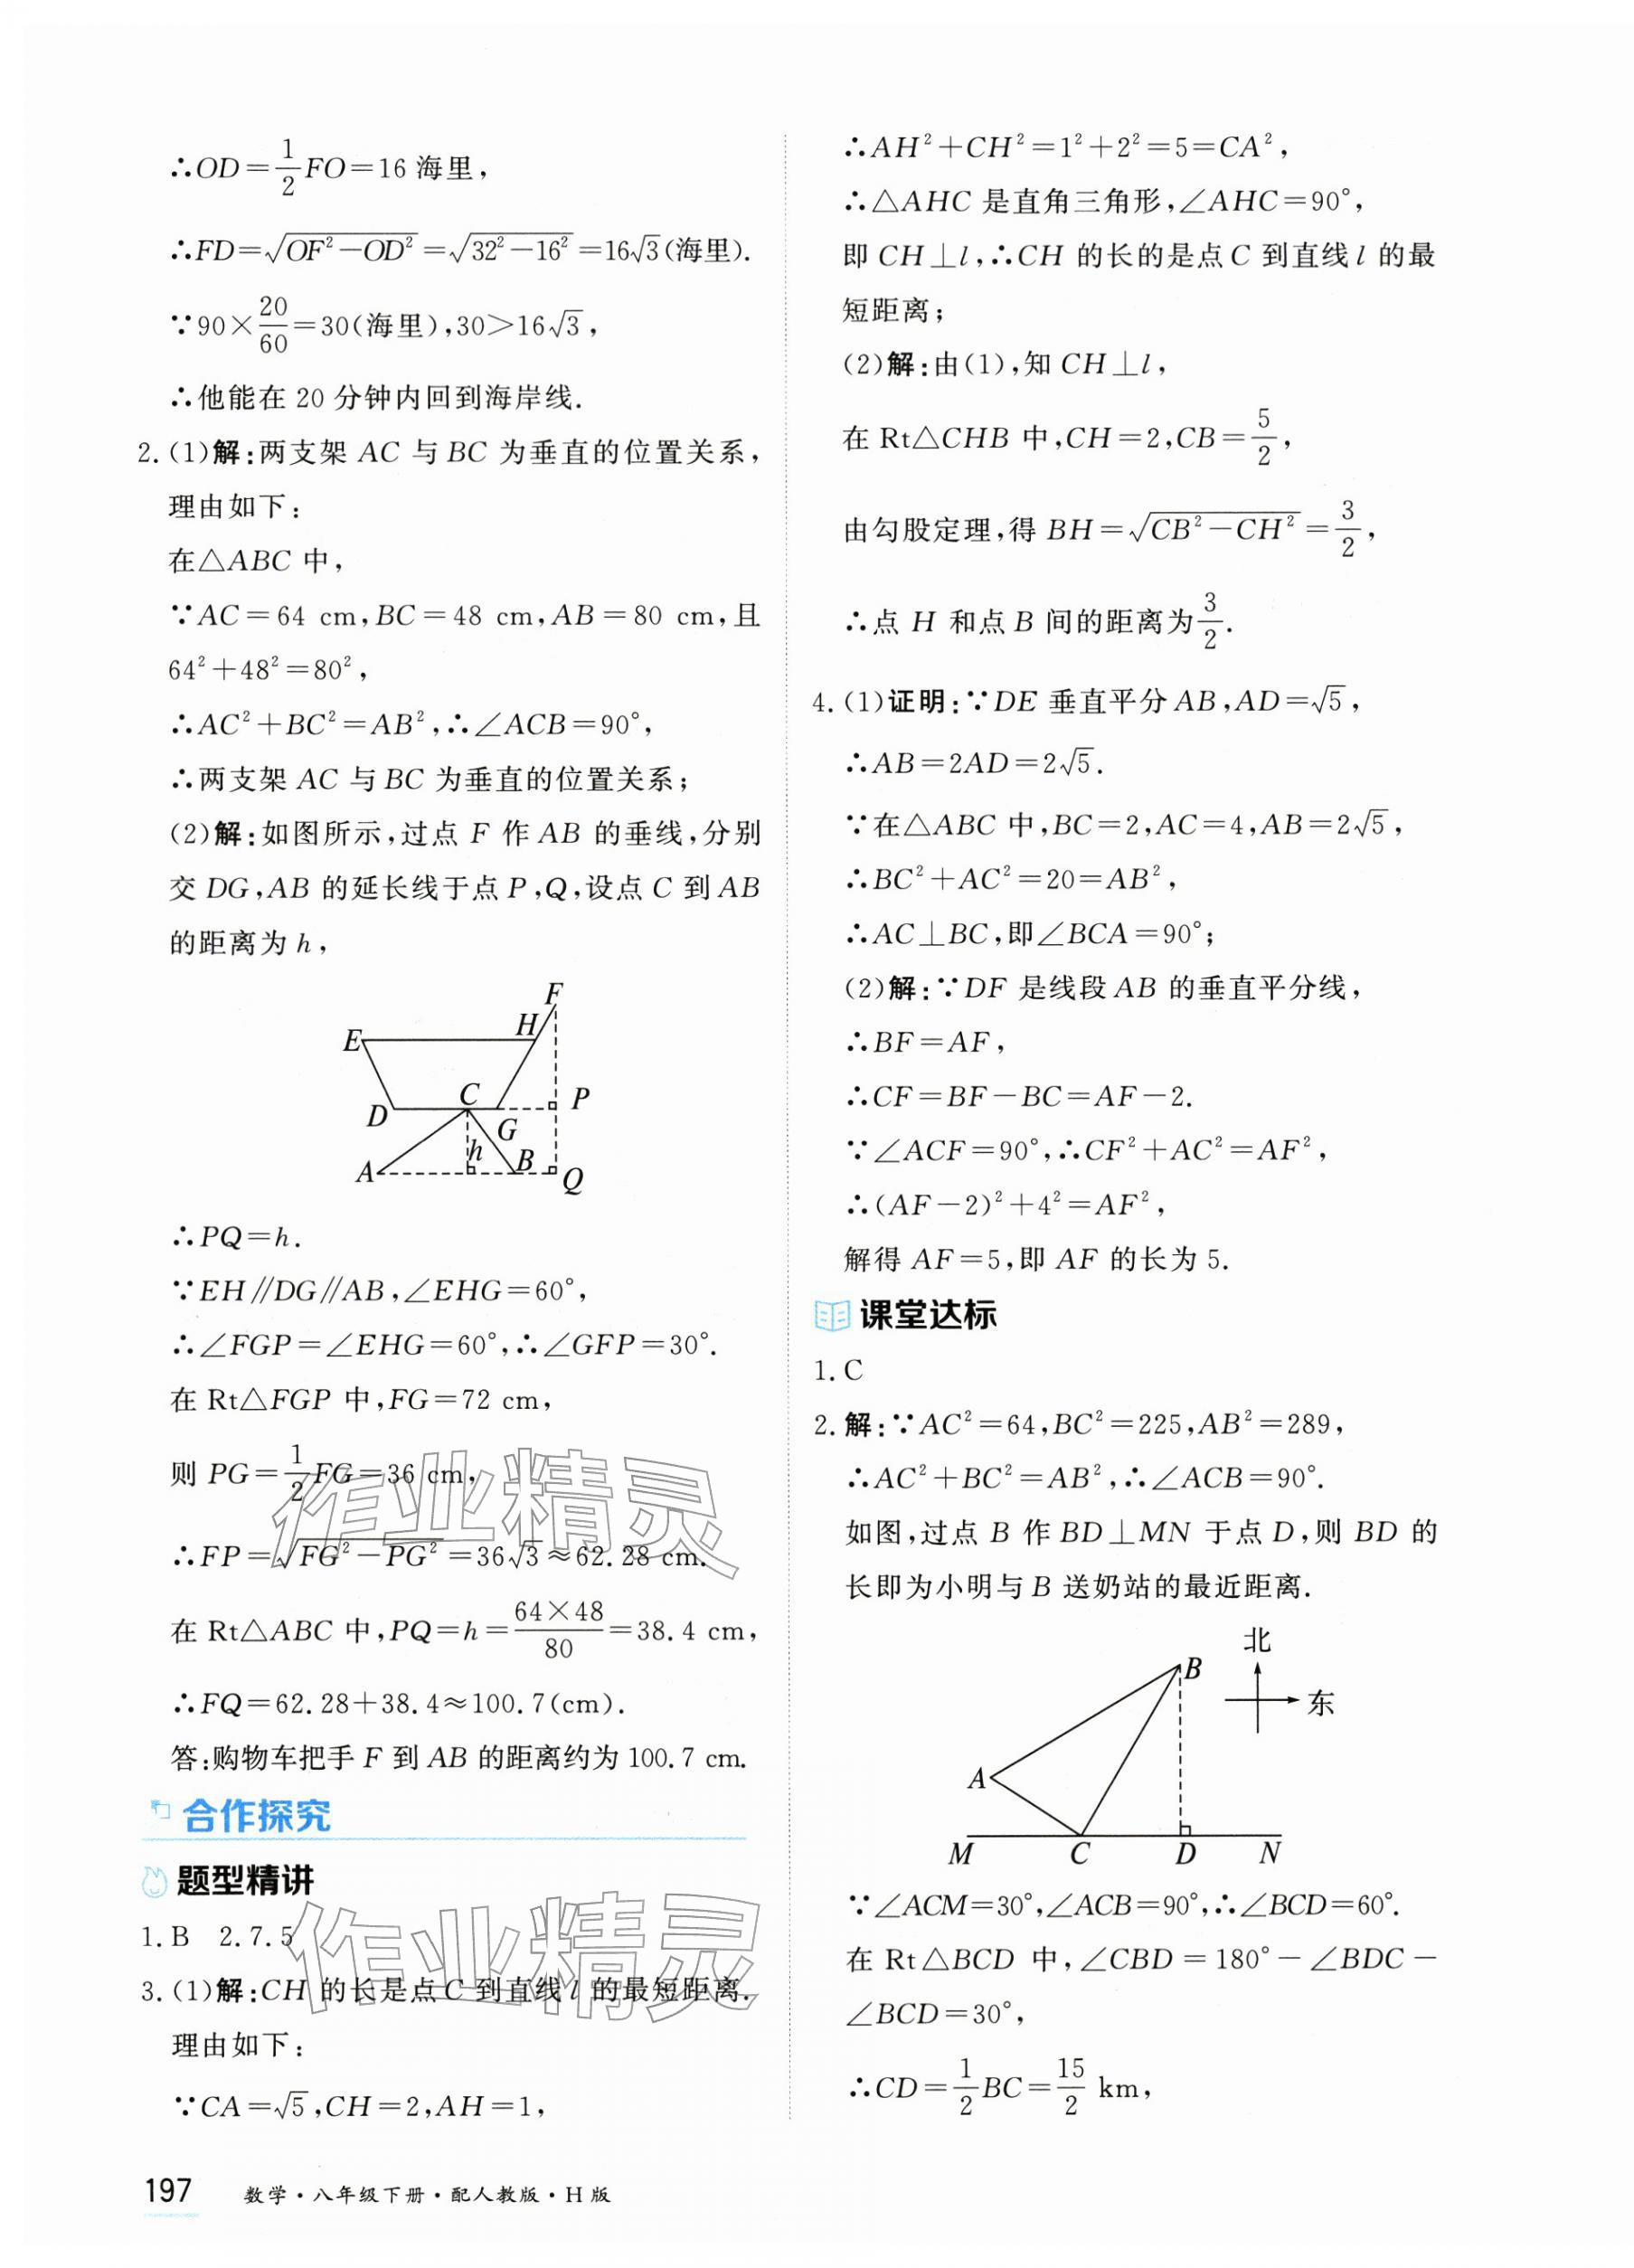 ∴OD=1/2FO=16 海里,
∴FD=√(OF²-OD²)=√(32²-16²)=16√3(海里).
∵90×20/60=30(海里),30>16√3,
∴他能在 20 分钟内回到海岸线.
2.(1)解:两支架 AC 与 BC 为垂直的位置关系,
理由如下:
在△ABC 中,
∵AC=64 cm,BC=48 cm,AB=80 cm,且
64²+48²=80²,
∴AC²+BC²=AB²,∴∠ACB=90°,
∴两支架 AC 与 BC 为垂直的位置关系;
(2)解:如图所示,过点 F 作 AB 的垂线,分别
交 DG,AB 的延长线于点 P,Q,设点 C 到 AB
的距离为 h,
F
H
E
C
P
D
G
h
B
A
Q
∴PQ=h.
∵EH∥DG∥AB,∠EHG=60°,
∴∠FGP=∠EHG=60°,∴∠GFP=30°.
在 Rt△FGP 中,FG=72 cm,
则 PG=1/2FG=36 cm,
∴FP=√(FG²-PG²)=36√3≈62.28 cm.
在 Rt△ABC 中,PQ=h=64×48/80=38.4 cm,
∴FQ=62.28+38.4≈100.7(cm).
答:购物车把手 F 到 AB 的距离约为 100.7 cm.
合作探究
题型精讲
1.B 2.7.5
3.(1)解:CH 的长是点 C 到直线 l 的最短距离.
理由如下:
∵CA=√5,CH=2,AH=1,
作业精灵
作业精灵
197 数学·八年级下册·配人教版·H 版
∴AH²+CH²=1²+2²=5=CA²,
∴△AHC 是直角三角形,∠AHC=90°,
即 CH⊥l,∴CH 的长的是点 C 到直线 l 的最
短距离;
(2)解:由(1),知 CH⊥l,
在 Rt△CHB 中,CH=2,CB=5/2,
由勾股定理,得 BH=√(CB²-CH²)=3/2,
∴点 H 和点 B 间的距离为3/2.
4.(1)证明:∵DE 垂直平分 AB,AD=√5,
∴AB=2AD=2√5.
∵在△ABC 中,BC=2,AC=4,AB=2√5,
∴BC²+AC²=20=AB²,
∴AC⊥BC,即∠BCA=90°;
(2)解:∵DF 是线段 AB 的垂直平分线,
∴BF=AF,
∴CF=BF-BC=AF-2.
∵∠ACF=90°,∴CF²+AC²=AF²,
∴(AF-2)²+4²=AF²,
解得 AF=5,即 AF 的长为 5.
课堂达标
1.C
2.解:∵AC²=64,BC²=225,AB²=289,
∴AC²+BC²=AB²,∴∠ACB=90°.
如图,过点 B 作 BD⊥MN 于点 D,则 BD 的
长即为小明与 B 送奶站的最近距离.
北
B
东
A
M C D N
∵∠ACM=30°,∠ACB=90°,∴∠BCD=60°.
在 Rt△BCD 中,∠CBD=180°-∠BDC-
∠BCD=30°,
∴CD=1/2BC=15/2 km,